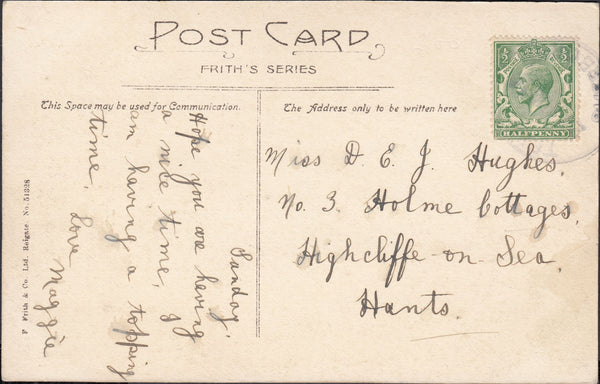 POST CARD
FRITH'S SERIES
This Space may be used for Communication.
The Address only to be written here
Sunday.
Hope you are having
a nice time, I
am having a topping
time.
Love
Maggie
½ ½
HALFPENNY
Miss D. E. J. Hughes.
No. 3. Holme Cottages,
Highcliffe-on-Sea.
Hants.
F Frith & Co. Ltd. Reigate. No. 51328